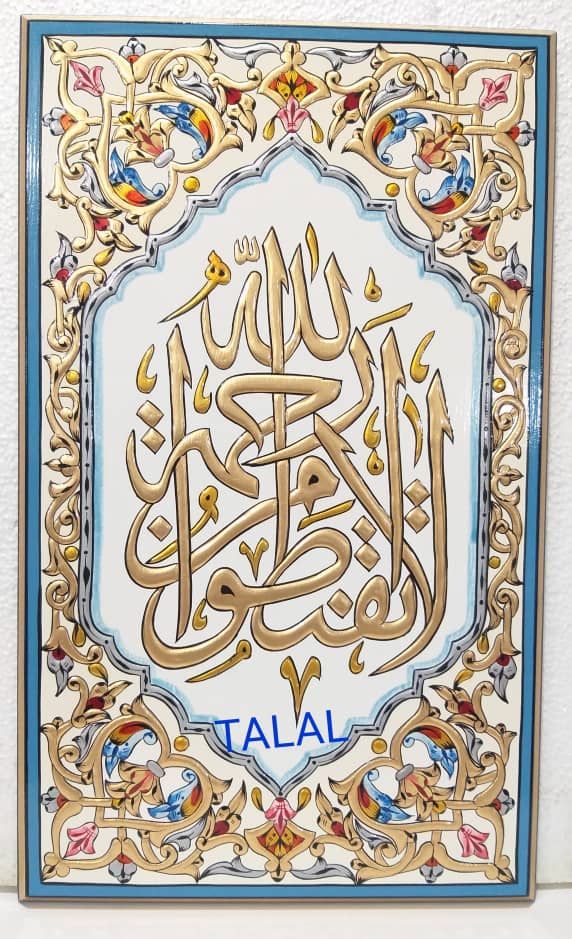 لا تقنطوا من رحمة الله
TALAL